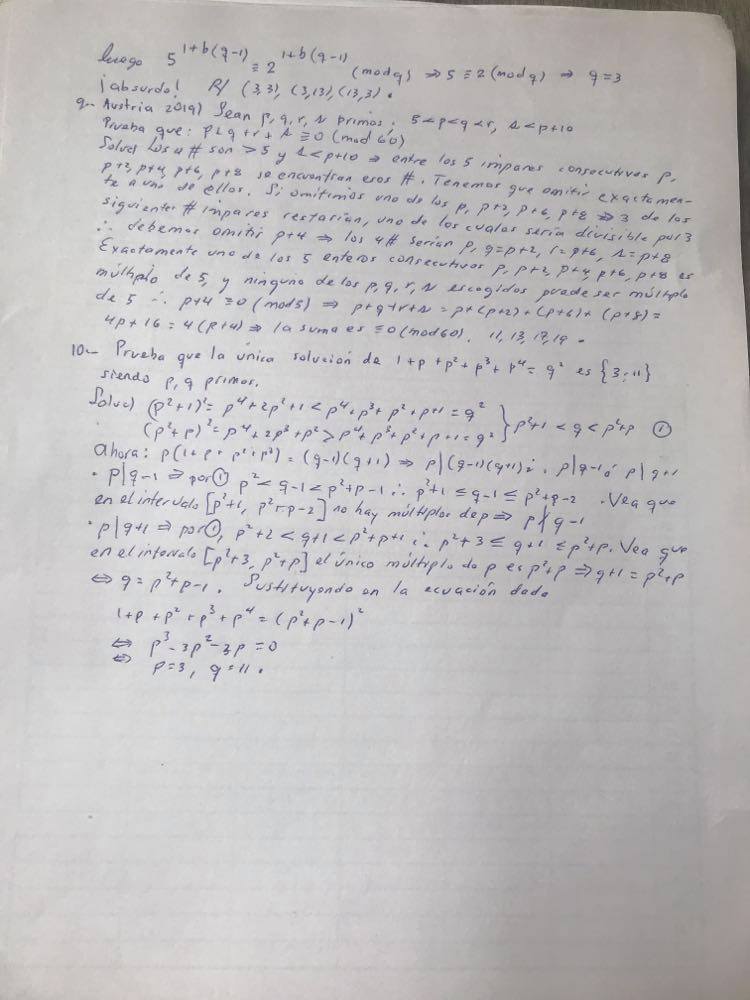 luego 5^{1+b(q-1)} ≡ 2^{1+b(q-1)} (mod q) ⇒ 5 ≡ 2 (mod q) ⇒ q=3
¡absurdo! R/ (3,3), (3,13), (13,3).
9.- Austria 2019) Sean p, q, r, s primos. 5<p<q<r, s<p+10
Prueba que: p+q+r+s ≡ 0 (mod 60)
Soluc) Los 4 # son >5 y s<p+10 ⇒ entre los 5 impares consecutivos p,
p+2, p+4, p+6, p+8 se encuentran esos #. Tenemos que omitir exactamen-
te a uno de ellos. Si omitimos uno de los p, p+2, p+6, p+8 ⇒ 3 de los
siguientes # impares restarían, uno de los cuales sería divisible por 3
∴ debemos omitir p+4 ⇒ los 4 # serían p, q=p+2, r=p+6, s=p+8
Exactamente uno de los 5 enteros consecutivos p, p+2, p+4, p+6, p+8 es
múltiplo de 5, y ninguno de los p, q, r, s escogidos puede ser múltiplo
de 5 ∴ p+4 ≡ 0 (mod 5) ⇒ p+q+r+s = p+(p+2)+(p+6)+(p+8)=
4p+16=4(p+4) ⇒ la suma es ≡0 (mod 60). 11, 13, 17, 19.
10.- Prueba que la única solución de 1+p+p²+p³+p⁴=q² es {3;11}
siendo p, q primos.
Soluc) (p²+1)²=p⁴+2p²+1<p⁴+p³+p²+p+1=q²
(p²+p)²=p⁴+2p³+p²>p⁴+p³+p²+p+1=q² } p²+1<q<p²+p ①
Ahora: p(1+p+p²+p³)=(q-1)(q+1) ⇒ p|(q-1)(q+1) ∴ p|q-1 ó p|q+1
• p|q-1 ⇒ por ① p²<q-1<p²+p-1 ∴ p²+1 ≤ q-1 ≤ p²+p-2. Vea que
en el intervalo [p²+1, p²+p-2] no hay múltiplos de p ⇒ p∤q-1
• p|q+1 ⇒ por ①, p²+2<q+1<p²+p+1 ∴ p²+3 ≤ q+1 ≤ p²+p. Vea que
en el intervalo [p²+3, p²+p] el único múltiplo de p es p²+p ⇒ q+1=p²+p
⇔ q=p²+p-1. Sustituyendo en la ecuación dada
1+p+p²+p³+p⁴=(p²+p-1)²
⇔ p³-2p²-3p=0
⇔ p=3, q=11.